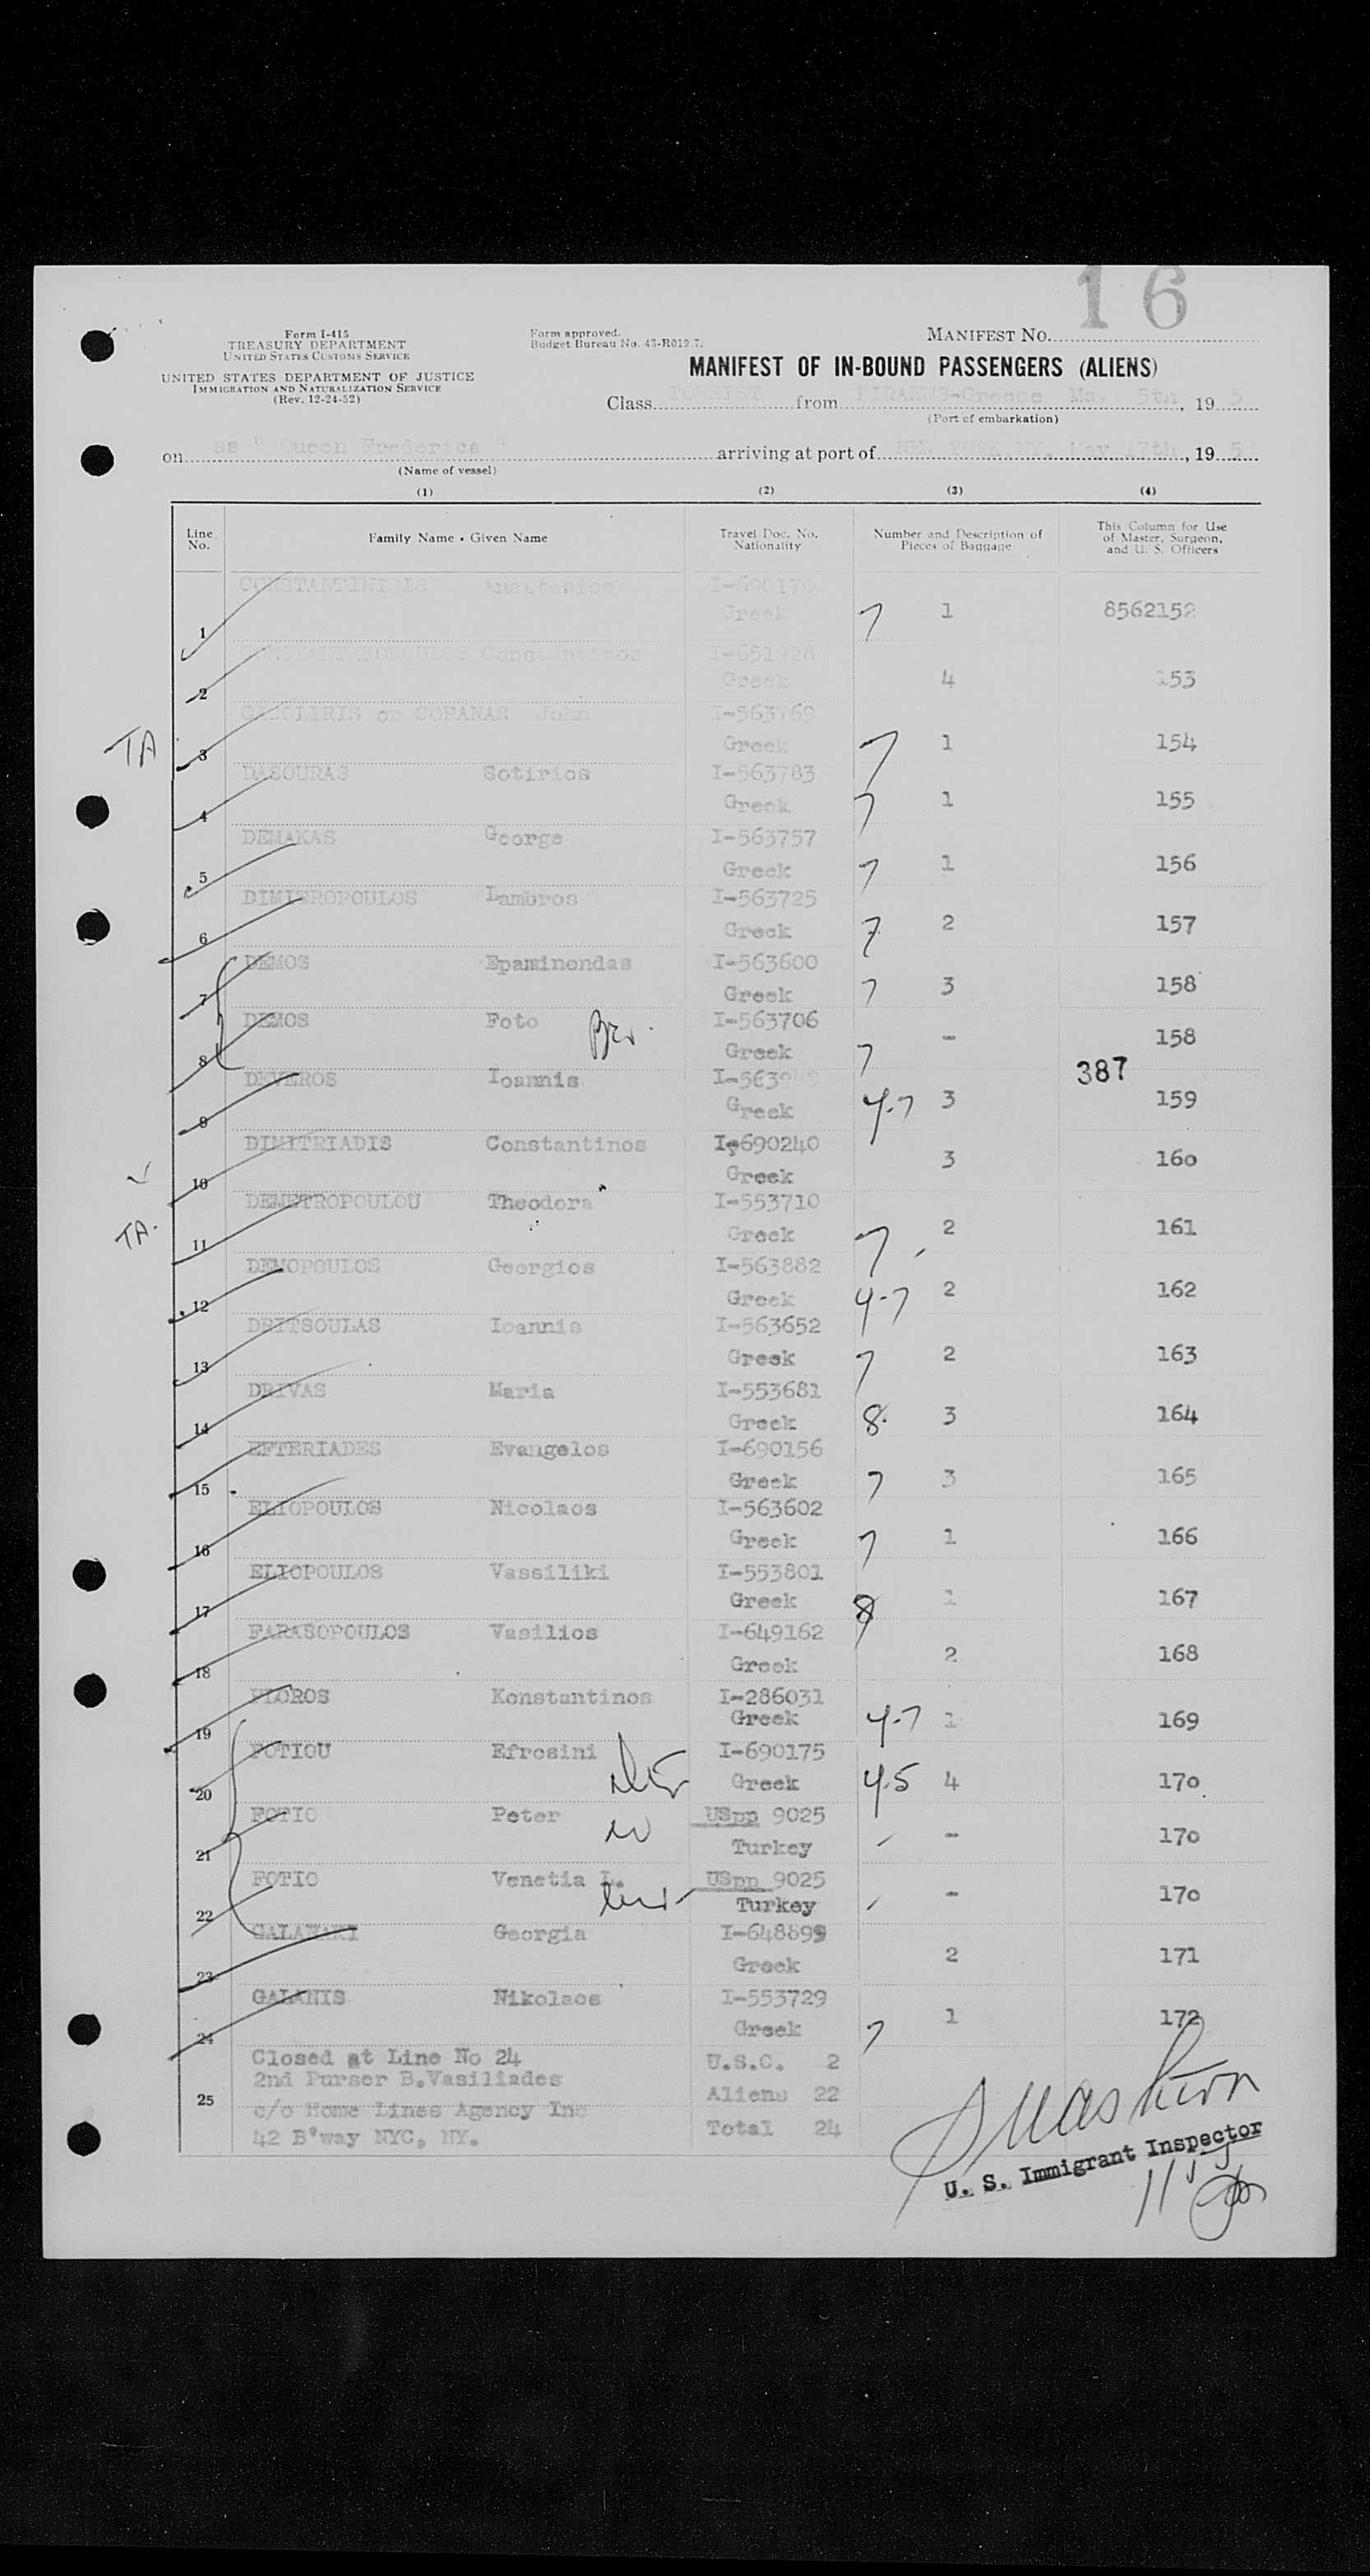 16
Form I-415
TREASURY DEPARTMENT
UNITED STATES CUSTOMS SERVICE
UNITED STATES DEPARTMENT OF JUSTICE
IMMIGRATION AND NATURALIZATION SERVICE
(Rev. 12-24-52)
Form approved.
Budget Bureau No. 43-R019.7.
MANIFEST NO.
MANIFEST OF IN-BOUND PASSENGERS (ALIENS)
Class TOURIST from PIRAEUS-Greece May 5th, 195
(Port of embarkation)
on ss " Queen Frederica " arriving at port of NEW YORK, NY. May 17th, 195
(Name of vessel)
(1) (2) (3) (4)
Line No. Family Name • Given Name Travel Doc. No. Nationality Number and Description of Pieces of Baggage This Column for Use of Master, Surgeon, and U. S. Officers
CONSTANTINIDIS Anastasios I-690170
1 Greek 7 1 8562152
Constantinos I-651928
2 Greek 4 153
or COPANAS John I-563769
TA 3 Greek 7 1 154
DASOURAS Sotirios I-563783
4 Greek 7 1 155
DEMAKAS George I-563757
5 Greek 7 1 156
DIMITROPOULOS Lambros I-563725
6 Greek 7 2 157
DEMOS Epaminondas I-563600
7 Greek 7 3 158
DEMOS Foto I-563706
8 Greek 7 - 158
387
DEVEROS Ioannis I-563
9 Greek 4-7 3 159
DIMITRIADIS Constantinos I-690240
10 Greek 3 160
DEMETROPOULOU Theodora I-553710
TA. 11 Greek 7 2 161
DEMOPOULOS Georgios I-563882
12 Greek 4-7 2 162
DRITSOULAS Ioannis I-563652
13 Greek 7 2 163
DRIVAS Maria I-553681
14 Greek 8 3 164
EFTERIADES Evangelos I-690156
15 Greek 7 3 165
ELIOPOULOS Nicolaos I-563602
16 Greek 7 1 166
ELIOPOULOS Vassiliki I-553801
17 Greek 8 1 167
FARASOPOULOS Vasilios I-649162
18 Greek 2 168
FLOROS Konstantinos I-286031
19 Greek 4-7 1 169
FOTIOU Efrosini I-690175
20 Greek 4.5 4 170
FOTIO Peter USpp 9025
21 Turkey - 170
FOTIO Venetia L. USpp 9025
22 Turkey - 170
Georgia I-648899
23 Greek 2 171
GALANIS Nikolaos I-553729
24 Greek 7 1 172
Closed at Line No 24 U.S.C. 2
2nd Purser B.Vasiliades
25 Aliens 22
c/o Home Lines Agency Inc
42 B'way NYC, NY. Total 24
U. S. Immigrant Inspector